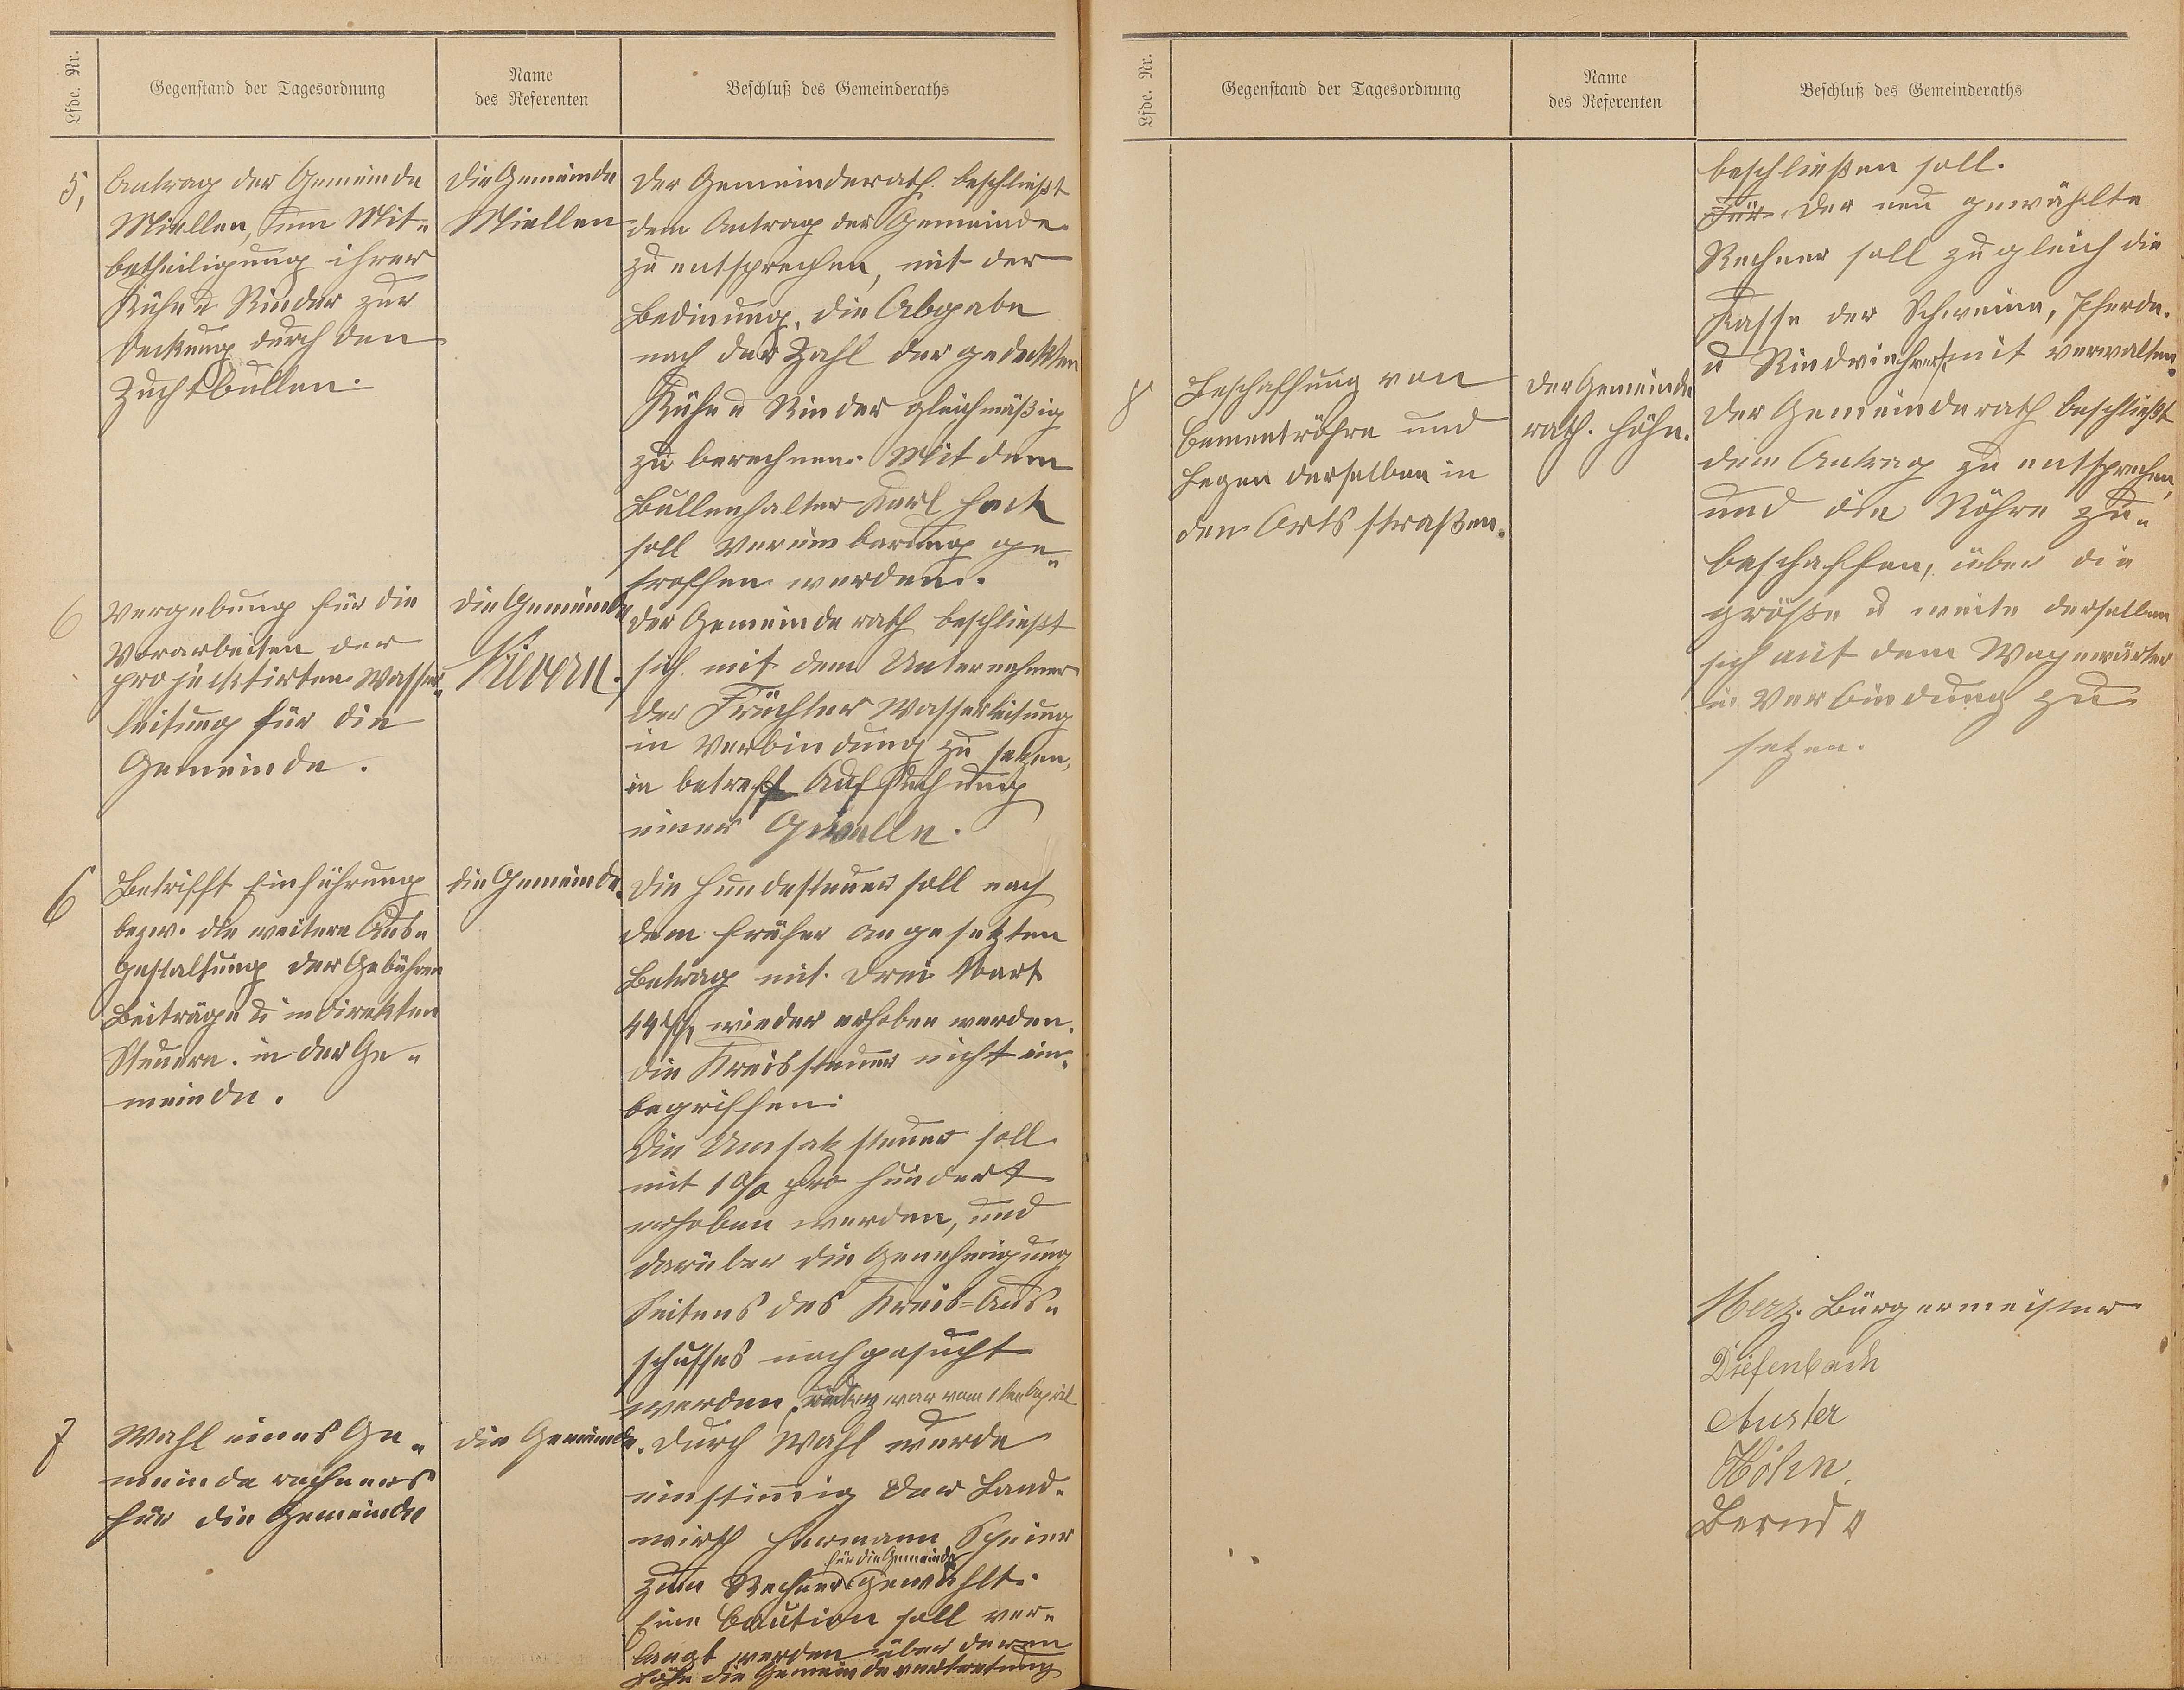 Lfde. Nr.
Gegenstand der Tagesordnung
Name
des Referenten
Beschluß des Gemeinderaths
5,
Antrag der Gemeinde
Miellen, um Mit-
betheiligung ihrer
Kühe u Rinder zur
Deckung durch den
Zuchtbullen.
die Gemeinde
Miellen
Der Gemeinderath beschließt
dem Antrag der Gemeinde
zu entsprechen, mit der
Bedinung, die Abgabe
nach der Zahl der gedeckten
Kühe u Rinder gleichmäßig
zu berechnen. Mit dem
Bullenhalter Karl Hack
soll Vereinbarung ge-
troffen werden.
6
Vergebung für die
Vorarbeiten der
projecktirten Wasser-
leitung für die
Gemeinde.
die Gemeinde
Nievern.
Der Gemeinderath beschließt
sich mit dem Unternehmer
der Früchter Wasserleitung
in Verbindung zu setzen,
in betreff Aufsuchung
einer Quelle.
6
Betrifft Einführung
bezw. die weitere Aus-
gestaltung der Gebühren
Beiträge u indirekten
Steuern. in der Ge-
meinde.
die Gemeinde.
Die Hundesteuer soll nach
dem früher angesetzten
Betrag mit drei Mark
44 Pf, wieder erhoben werden.
die Kreissteuer nicht ein-
begriffen.
Die Umsatzsteuer soll
mit 1 % pro hundert
erhoben werden, und
darüber die Genehmigung
seitens des Kreis-Aus-
schusses nachgesucht
werden, und zwar vom 1ten April
7
Wahl eines Ge-
meinderechners
für die Gemeinde
die Gemeinde.
Durch Wahl wurde
einstimig der Land-
wirth Hermann Speier
für die Gemeinde
zum Rechner gewählt.
Eine Caution soll ver-
langt werden über deren
Höhe die Gemeindevertretung
Lfde. Nr.
Gegenstand der Tagesordnung
Name
des Referenten
Beschluß des Gemeinderaths
beschließen soll.
Für der neu gewählte
Rechner soll zugleich die
Kasse der Schweine, Pferde.
u Rindviehvers. mit verwalten.
8
Beschaffung von
Cementröhre und
Legen derselben in
den Ortsstraßen.
Der Gemeinde
rath. Höhn.
Der Gemeinderath beschließt
dem Antrag zu entsprechen,
und die Röhre zu-
beschaffen, über die
größe u weite derselben
sich mit dem Wegewärter
in Verbindung zu
setzen.
Merz. Bürgermeister
Diefenbach
Auster
Höhn.
Bernd